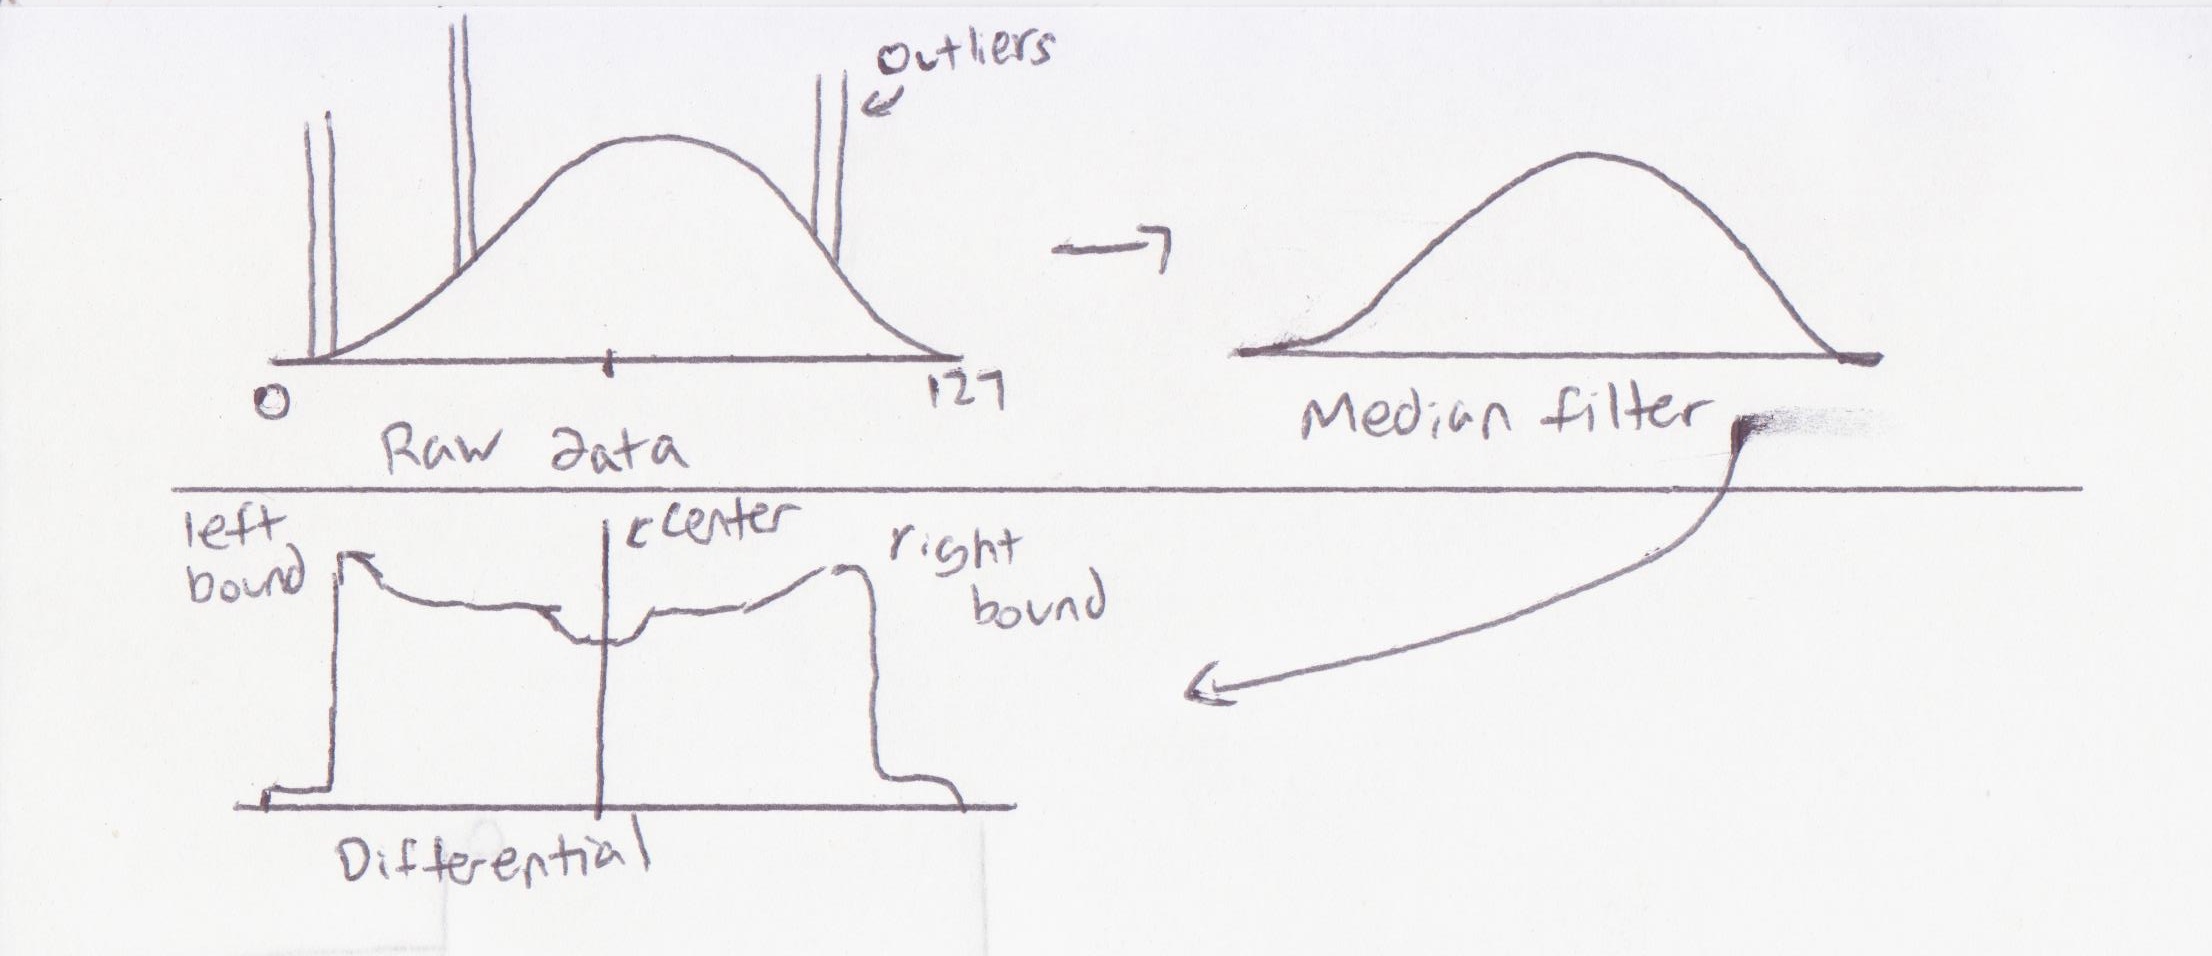 Outliers
0
127
Raw data
Median filter
left
bound
center
right
bound
Differential